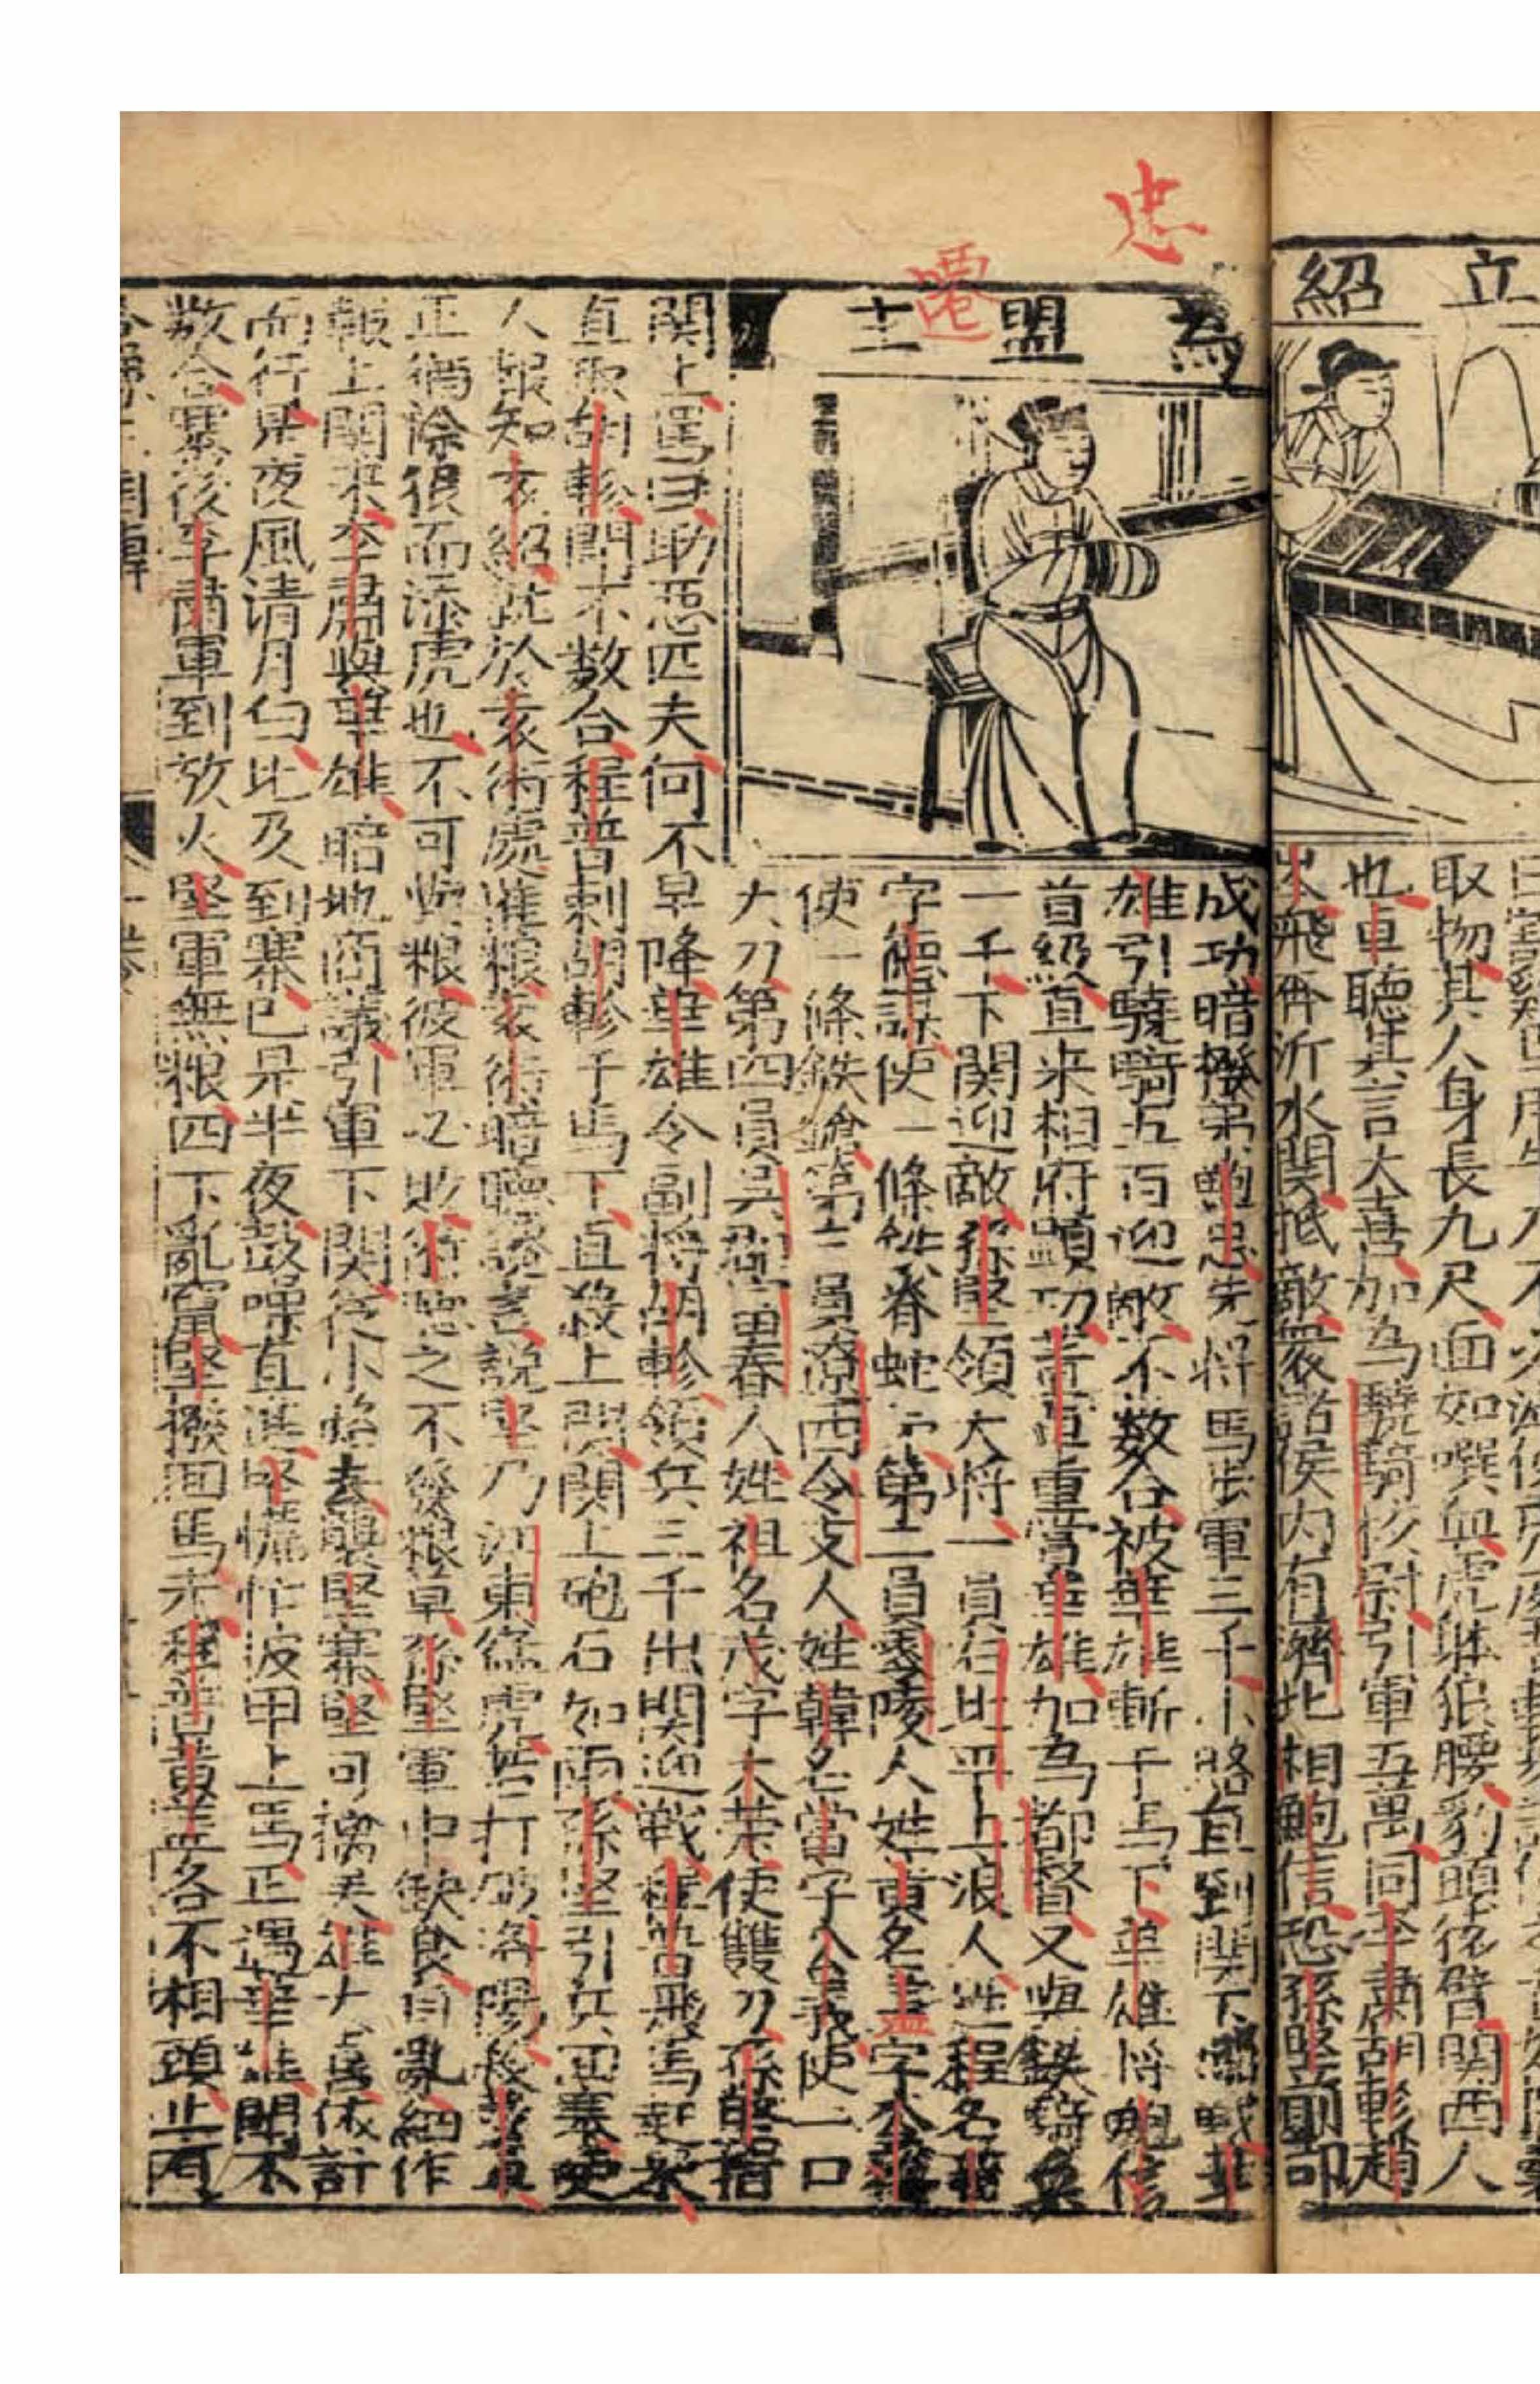 立紹
曰堂
取物其人身長九尺面如噀血虎軀狼腰豹頭猿臂関西人
也卓聽其言大喜加為驍騎校尉引軍五萬同李肅胡軫趙
岑飛奔沂水関抵敵衆諸侯内有濟北相鮑信恐孫堅前部
忠
遷
為盟主
成功暗撥弟鮑忠先将馬步軍三千小路直到関下搦戰華
雄引驍騎五百迎敵不数合被華雄斬于馬下華雄将鮑信
首級直来相府獻功董卓重賞華雄加為都督又與鉄騎兵
一千下関迎敵孫堅領大将一員右北平上浪人姓程名普
字德謀使一條鉄脊蛇矛第二員零陵人姓黄名盖字公覆
使一條鉄鎗第三員遼西令支人姓韓名當字公義使一口
大刀第四員吳郡冨春人姓祖名茂字大荣使雙刀孫堅指
関上罵曰助惡匹夫何不早降華雄令副将胡軫領兵三千出関迎戦程普飛馬挺矛
直取胡軫閗不数合程普刺胡軫于馬下直殺上関関上砲石如雨孫堅引兵囬寨使
人報知袁紹就於袁術處催粮袁術暗聽讒言說堅乃江東猛虎若打破洛陽後殺卓
正猶除狼而添虎也不可與粮彼軍必敗術聽之不發粮草孫堅軍中缺食自乱細作
報上関来李肅與華雄暗地商議引軍下関從小路去襲堅寨堅可擒矣雄大喜依計
而行是夜風清月白比及到寨已是半夜鼓噪直進堅慌忙披甲上馬正遇華雄閗不
数合寨後李肅軍到放火堅軍無粮四下乱竄堅撥囬馬走程普黄盖各不相顧止有